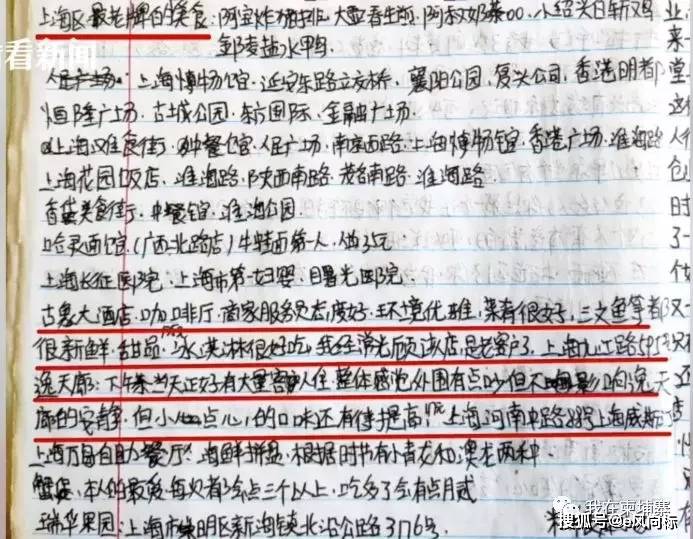 看看新闻
上海区最老牌的美食:阿宝炸猪排、大壶春生煎、阿 奶茶 小绍兴白斩鸡
盐水鸭
人民广场、上海博物馆、延安东路立交桥、襄阳公园、复兴公司、香港明都
恒隆广场、古城公园、东方国际、金融广场
上海 食街 种餐馆、人民广场、南京西路、上海博物馆、香港广场、淮海路
上海花园饭店、淮海路、陕西南路、茂名南路、淮海路
美食街、中餐馆、淮海公园
哈灵面馆(广西北路店)牛特面第一人
上海长征医院、上海市第一妇婴、曙光医院
古象大酒店、咖啡厅、商家服务员态度好、环境优雅、菜肴很好、三文鱼等都
很新鲜、甜品、冰淇淋很好吃,我经常光顾该店,是老客户了、上海九江路595
逸天廊:下午茶当天正好有大量客人入住、整体感觉外围有点吵但不 影响逸天
廊的安静,但小 点心的口味还有待提高,上海河南中路 上海威斯
上海万 自助餐厅:海鲜拼盘、根据时节有小青龙和澳龙两种
蟹 、本人的最爱每次都会点三个以上、吃多了会有点月贰
瑞华果园:上海市崇明区新海镇北沿公路3176号
我在柬埔寨
搜狐号@ 风向标